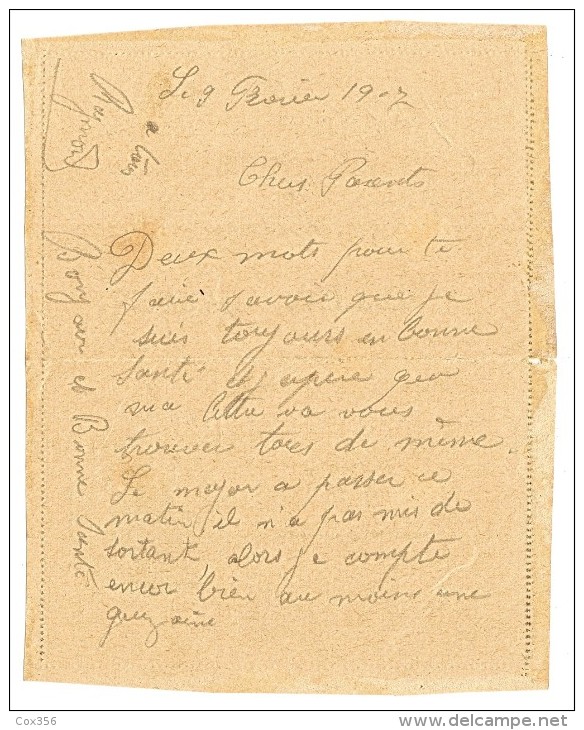 Le 9 Fevrier 1917
Chers Parents
Deux mots pour te
faire savoir que je
suis toujours en bonne
santé et j espere que
ma lettre va vous
trouver tores de même.
Le major a passer ce
matin, il n'a pas mis de
sortant, alors je compte
encor bien au moins une
quizaine
Bonjour et Bonne Santé
a tous
Cox356
delcampe.net